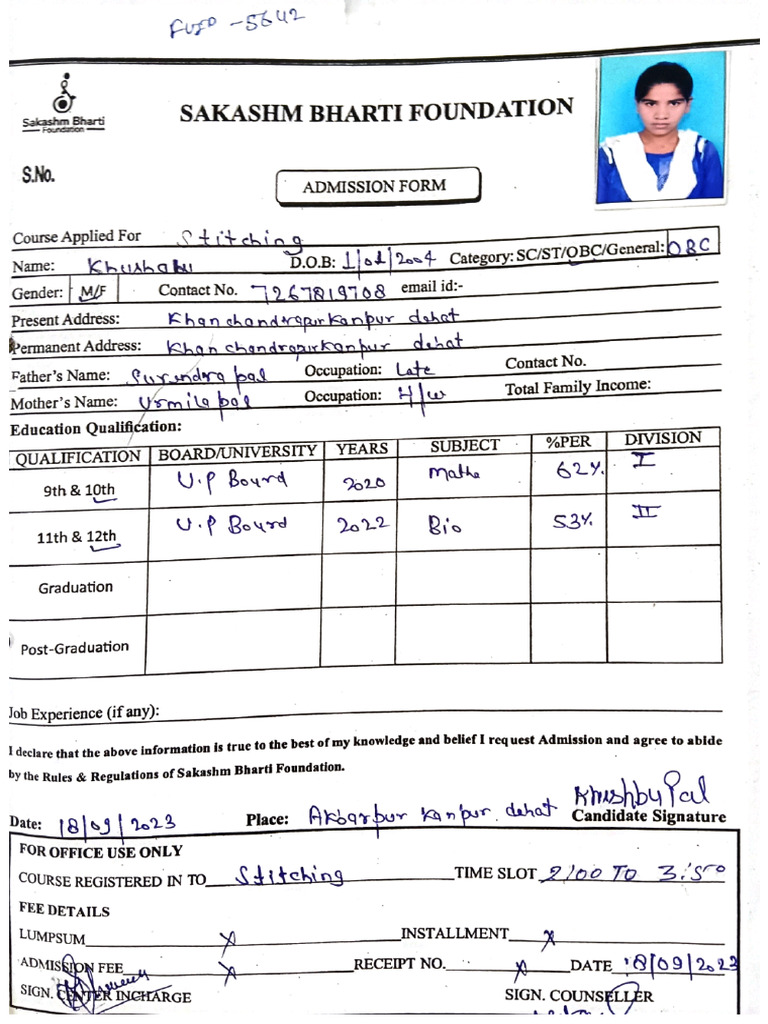 FUID - 5642
Sakashm Bharti
Foundation
SAKASHM BHARTI FOUNDATION
S.No.
ADMISSION FORM
Course Applied For Stitching
Name: Khushabu D.O.B: 1/01/2004 Category: SC/ST/OBC/General: OBC
Gender: M/F Contact No. 7267819708 email id:-
Present Address: Khanchandrapur Kanpur dehat
Permanent Address: Khanchandrapur Kanpur dehat
Father's Name: Surendra pal Occupation: Late Contact No.
Mother's Name: Urmila pal Occupation: H/W Total Family Income:
Education Qualification:
QUALIFICATION BOARD/UNIVERSITY YEARS SUBJECT %PER DIVISION
9th & 10th U.P Bourd 2020 Maths 62% I
11th & 12th U.P Bourd 2022 Bio 53% II
Graduation
Post-Graduation
Job Experience (if any):
I declare that the above information is true to the best of my knowledge and belief I request Admission and agree to abide
by the Rules & Regulations of Sakashm Bharti Foundation.
Khushbu Pal
Date: 18/09/2023 Place: Akbarpur Kanpur dehat Candidate Signature
FOR OFFICE USE ONLY
COURSE REGISTERED IN TO Stitching TIME SLOT 2:00 TO 3:50
FEE DETAILS
LUMPSUM X INSTALLMENT X
ADMISSION FEE X RECEIPT NO. X DATE 18/09/2023
SIGN. CENTER INCHARGE SIGN. COUNSELLER